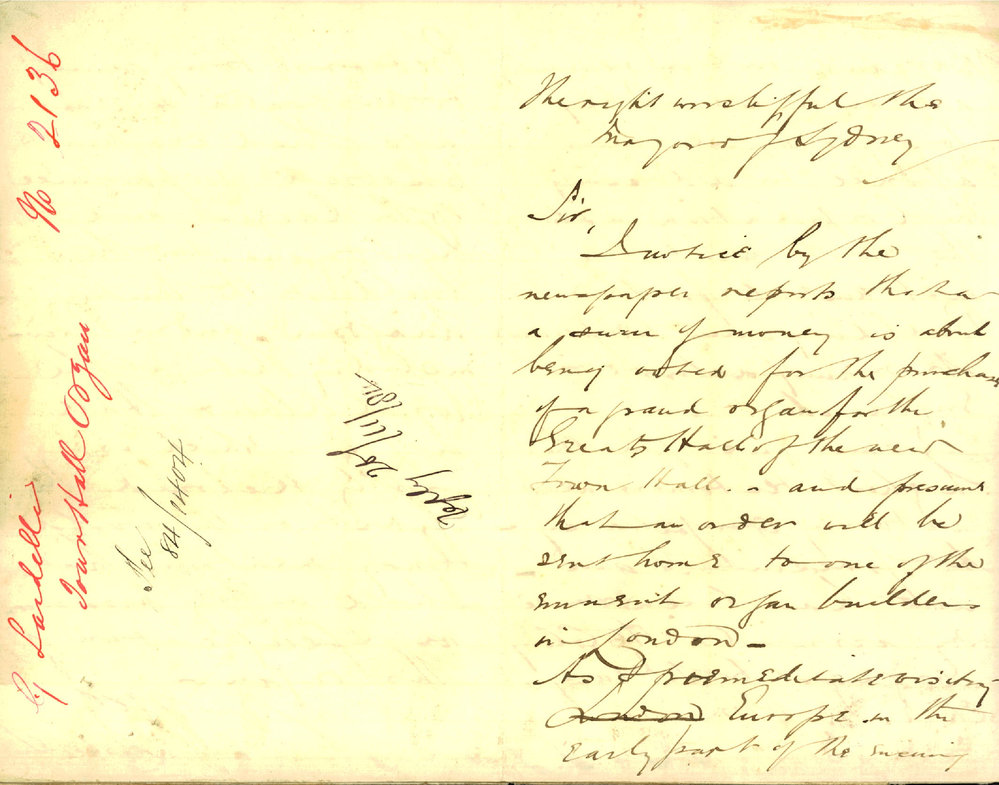 No 2136
G Sardelli
Town Hall Organ
See
84/1404
Reply 28/11/84
The right worshipful the
Mayor of Sydney
Sir,
I notice by the
newspaper reports that
a sum of money is about
being voted for the purchase
of a grand organ for the
Great Hall of the new
Town Hall - and presume
that an order will be
sent home to one of the
eminent organ builders
in London -
As I premeditate visiting
London Europe in the
early part of the ensuing